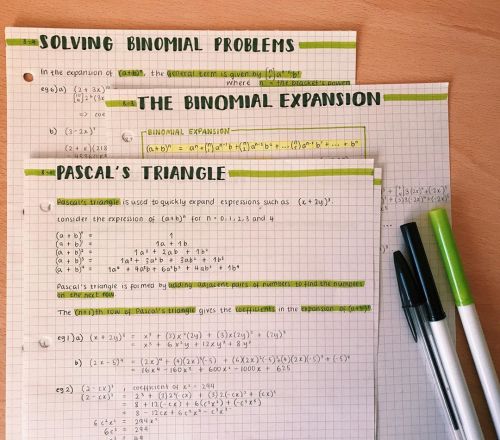 SOLVING BINOMIAL PROBLEMS
In the expansion of (a+b)ⁿ, the general term is given by
where n = the bracket's power
eg 6) a)
b) (3-2x)
THE BINOMIAL EXPANSION
BINOMIAL EXPANSION
(a+b)ⁿ = aⁿ + (ⁿ₁) aⁿ⁻¹ b + (ⁿ₂) aⁿ⁻² b² + ... (ⁿᵣ) aⁿ⁻ʳ bʳ + ... + bⁿ
PASCAL'S TRIANGLE
Pascal's triangle is used to quickly expand expressions such as (x + 2y)³.
consider the expression of (a+b)ⁿ for n = 0, 1, 2, 3 and 4
(a + b)⁰ = 1
(a + b)¹ = 1a + 1b
(a + b)² = 1a² + 2ab + 1b²
(a + b)³ = 1a³ + 3a²b + 3ab² + 1b³
(a + b)⁴ = 1a⁴ + 4a³b + 6a²b² + 4ab³ + 1b⁴
Pascal's triangle is formed by adding adjacent pairs of numbers to find the numbers
on the next row
The (n+1)th row of Pascal's triangle gives the coefficients in the expansion of (a+b)ⁿ
eg 1) a) (x + 2y)³ = x³ + (3)x²(2y) + (3)x(2y)² + (2y)³
= x³ + 6x²y + 12xy² + 8y³
b) (2x - 5)⁴ = (2x)⁴ + (4)(2x)³(-5) + (6)(2x)²(-5)² + (4)(2x)(-5)³ + (-5)⁴
= 16x⁴ - 160x³ + 600x² - 1000x + 625
eg 2) (2 - cx)³, coefficient of x² = 294
(2 - cx)³ = 2³ + (3)2²(-cx) + (3)2(-cx)² + (-cx)³
= 8 + 12(-cx) + 6(c²x²) + (-c³x³)
= 8 - 12cx + 6c²x² - c³x³
6c²x² = 294x²
6c² = 294